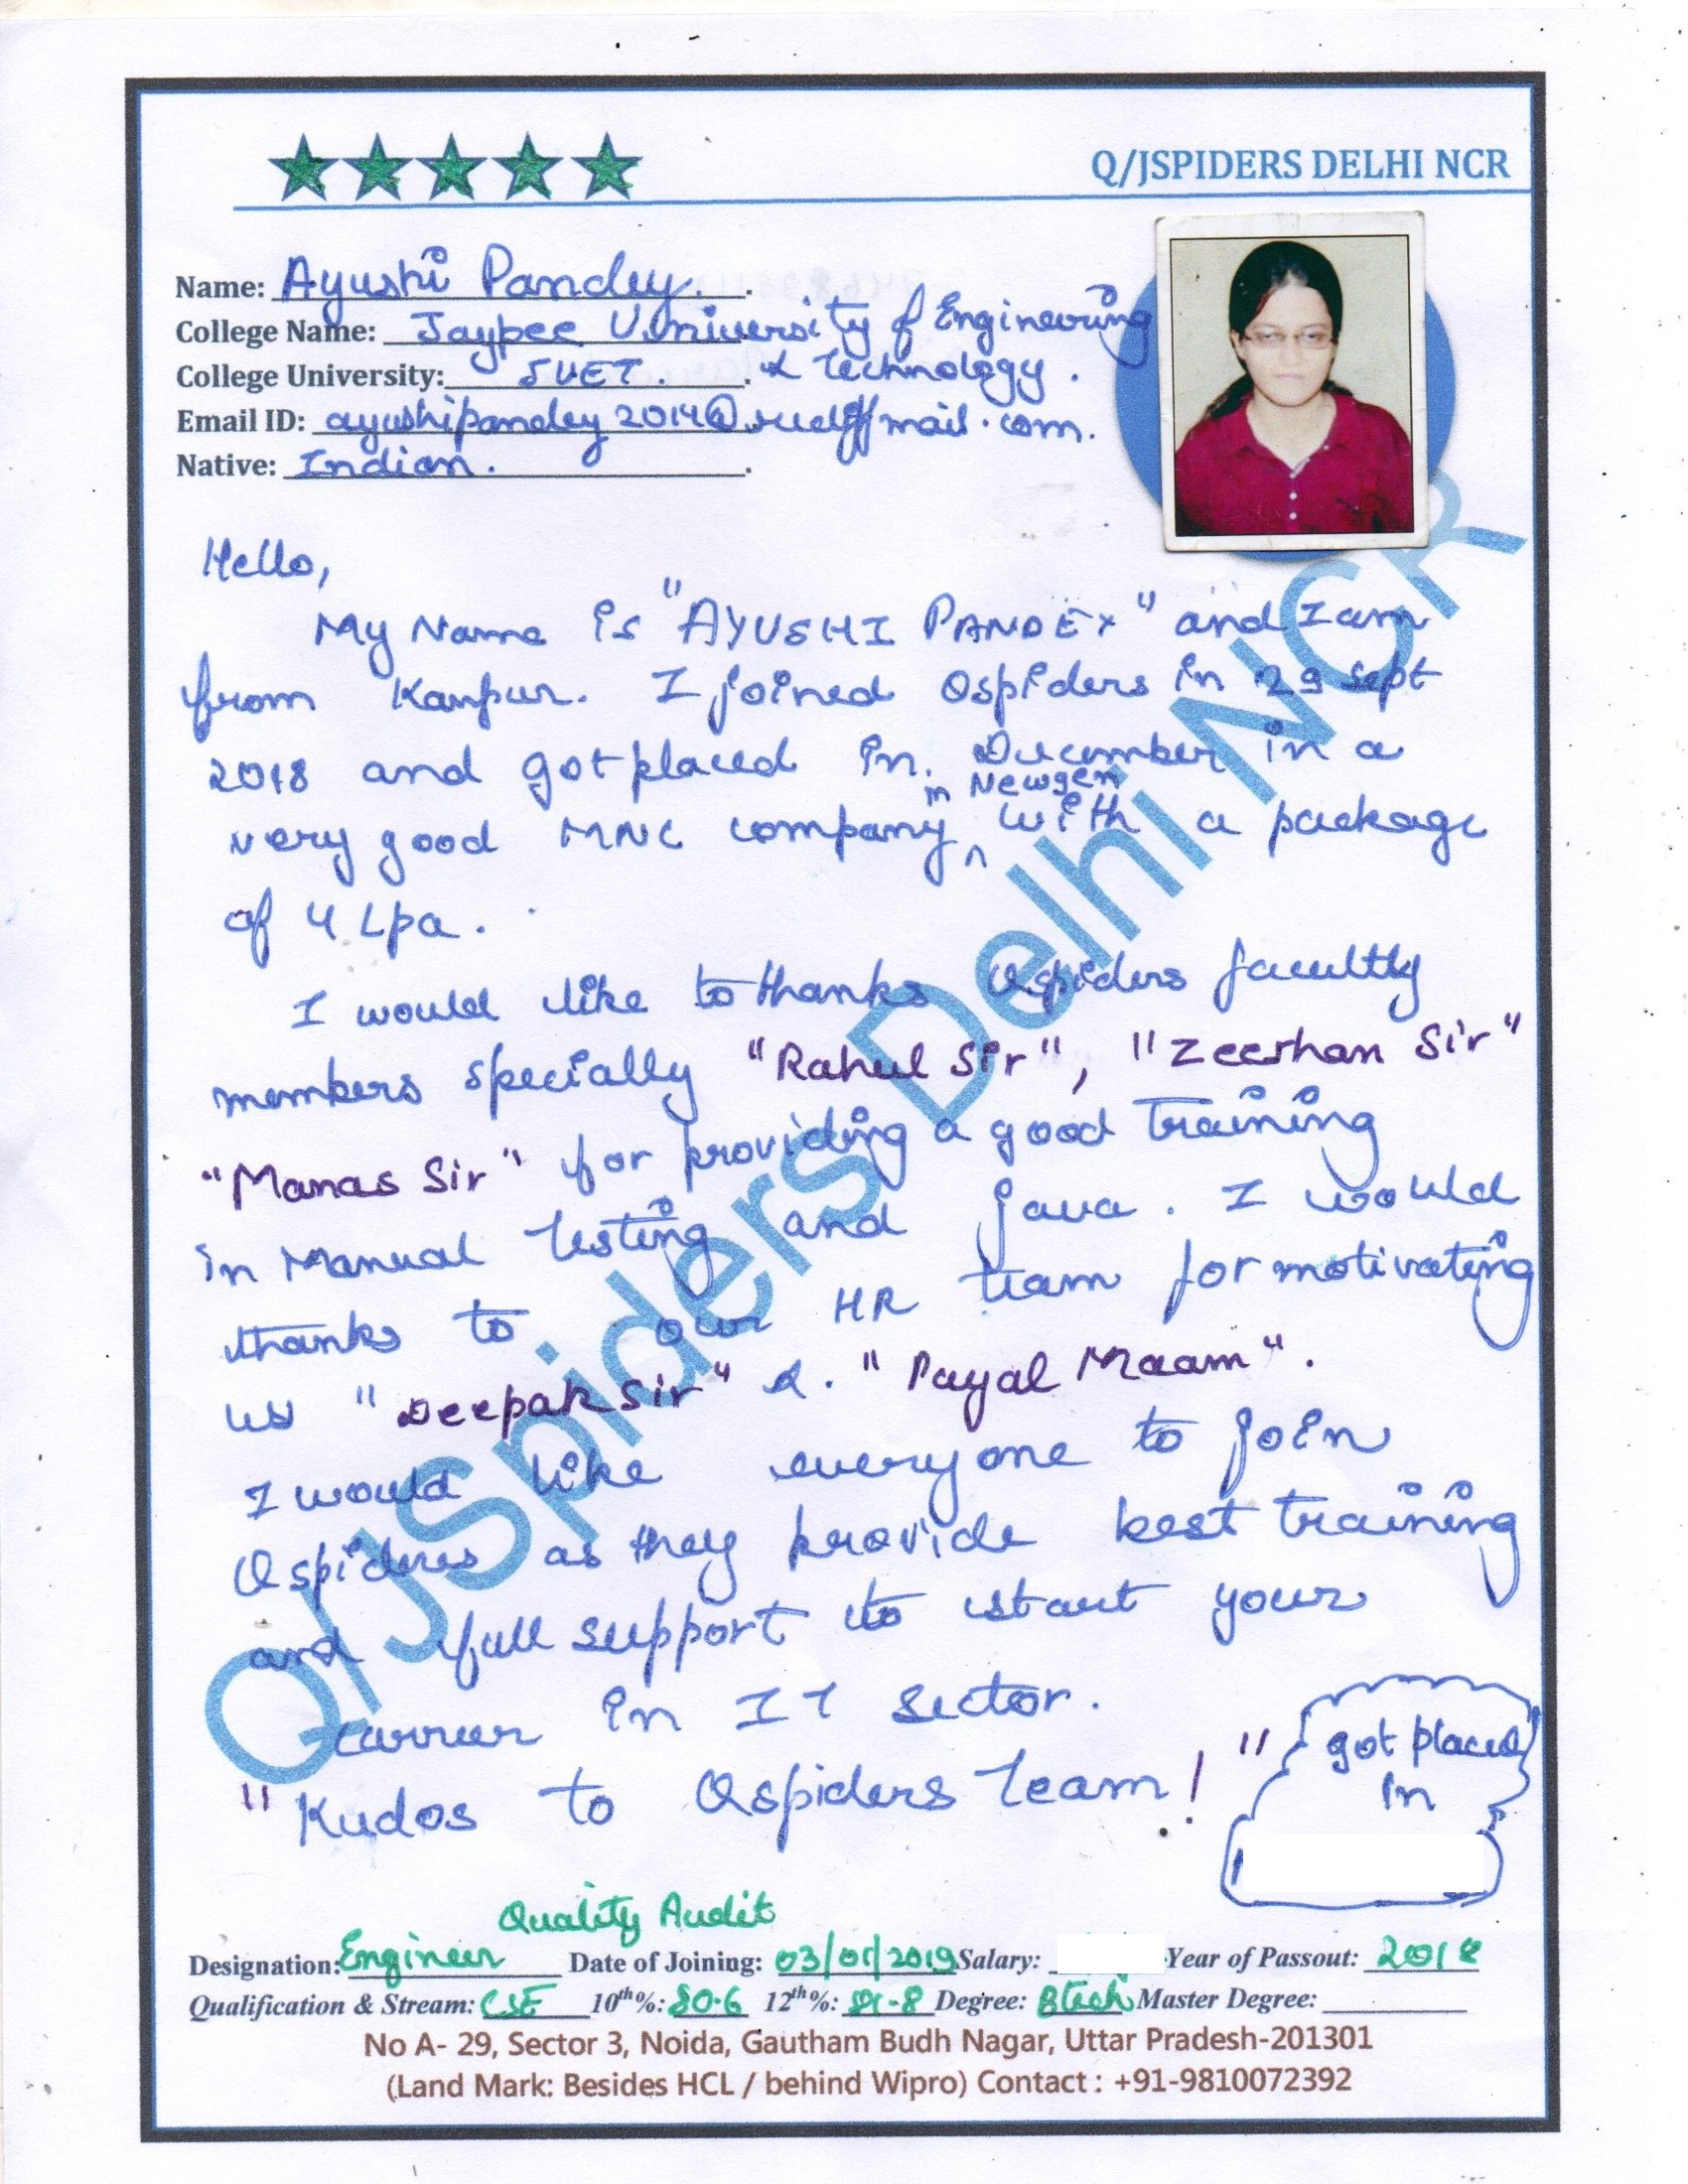 Q/JSPIDERS DELHI NCR
Name: Ayushi Pandey.
College Name: Jaypee University of Engineering
College University: JUET. & Technology.
Email ID: ayushipandey2014@rediffmail.com.
Native: Indian.
Hello,
My Name is "AYUSHI PANDEY" and I am
from Kanpur. I joined Qspiders in 29 sept
2018 and got placed in. December in a
in Newgen
very good MNC company ^ with a package
of 4 Lpa.
I would like to thanks Qspiders facultly
members specially "Rahul Sir", "Zeeshan Sir"
"Manas Sir" for providing a good training
in Manual testing and java. I would
thanks to our HR team for motivating
us "Deepak Sir" &. "Payal Maam".
I would like everyone to join
Qspiders as they provide best training
and full support to start your
carrier in IT sector.
"Kudos to Qspiders team!"
got placed
In
Quality Audit
Designation: Engineer Date of Joining: 03/01/2019 Salary: Year of Passout: 2018
Qualification & Stream: CSE 10th%: 80.6 12th%: 81.8 Degree: Btech Master Degree:
No A- 29, Sector 3, Noida, Gautham Budh Nagar, Uttar Pradesh-201301
(Land Mark: Besides HCL / behind Wipro) Contact : +91-9810072392
Q/JSpiders Delhi NCR